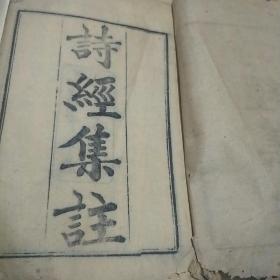 詩經集註